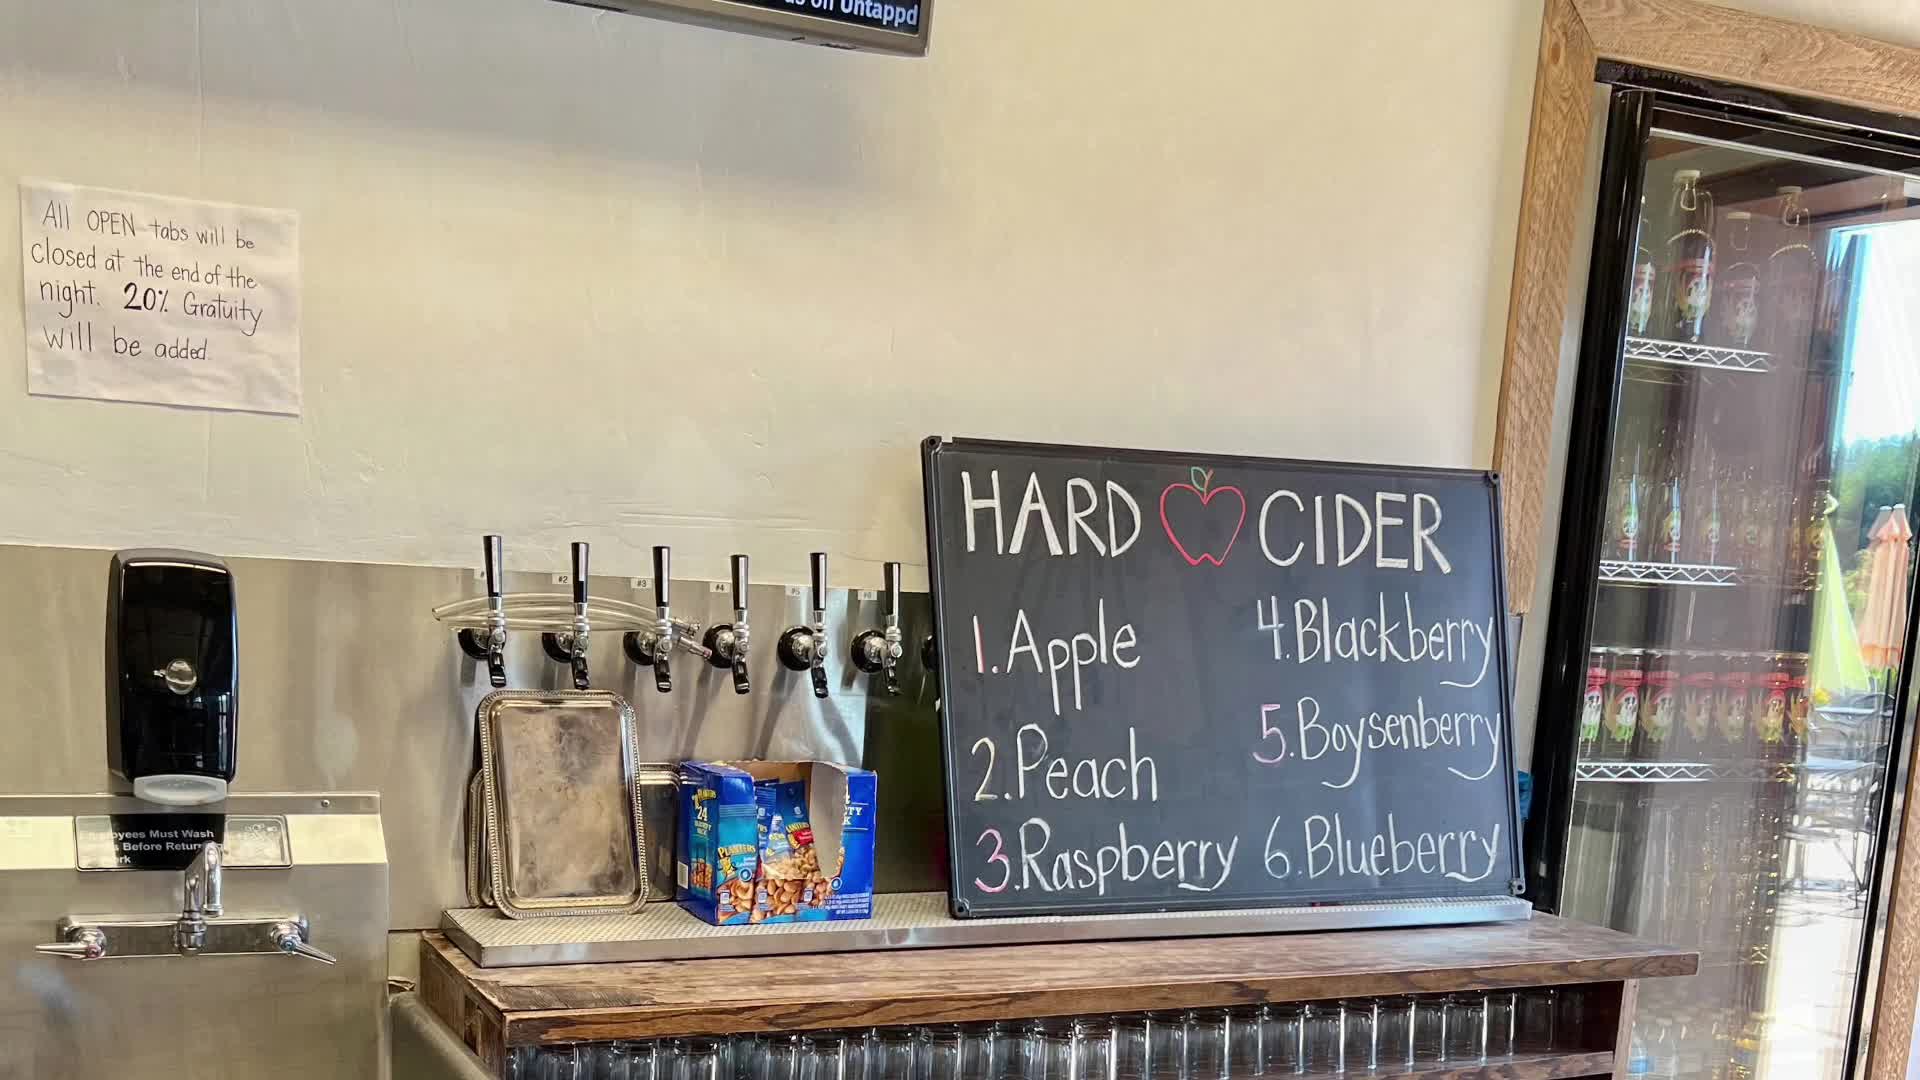 on Untappd
All OPEN tabs will be
closed at the end of the
night. 20% Gratuity
will be added.
HARD CIDER
1. Apple
2. Peach
3. Raspberry
4. Blackberry
5. Boysenberry
6. Blueberry
#2
#3
#4
#5
#6
Must Wash
Before
PLANTERS
24
PLANTERS